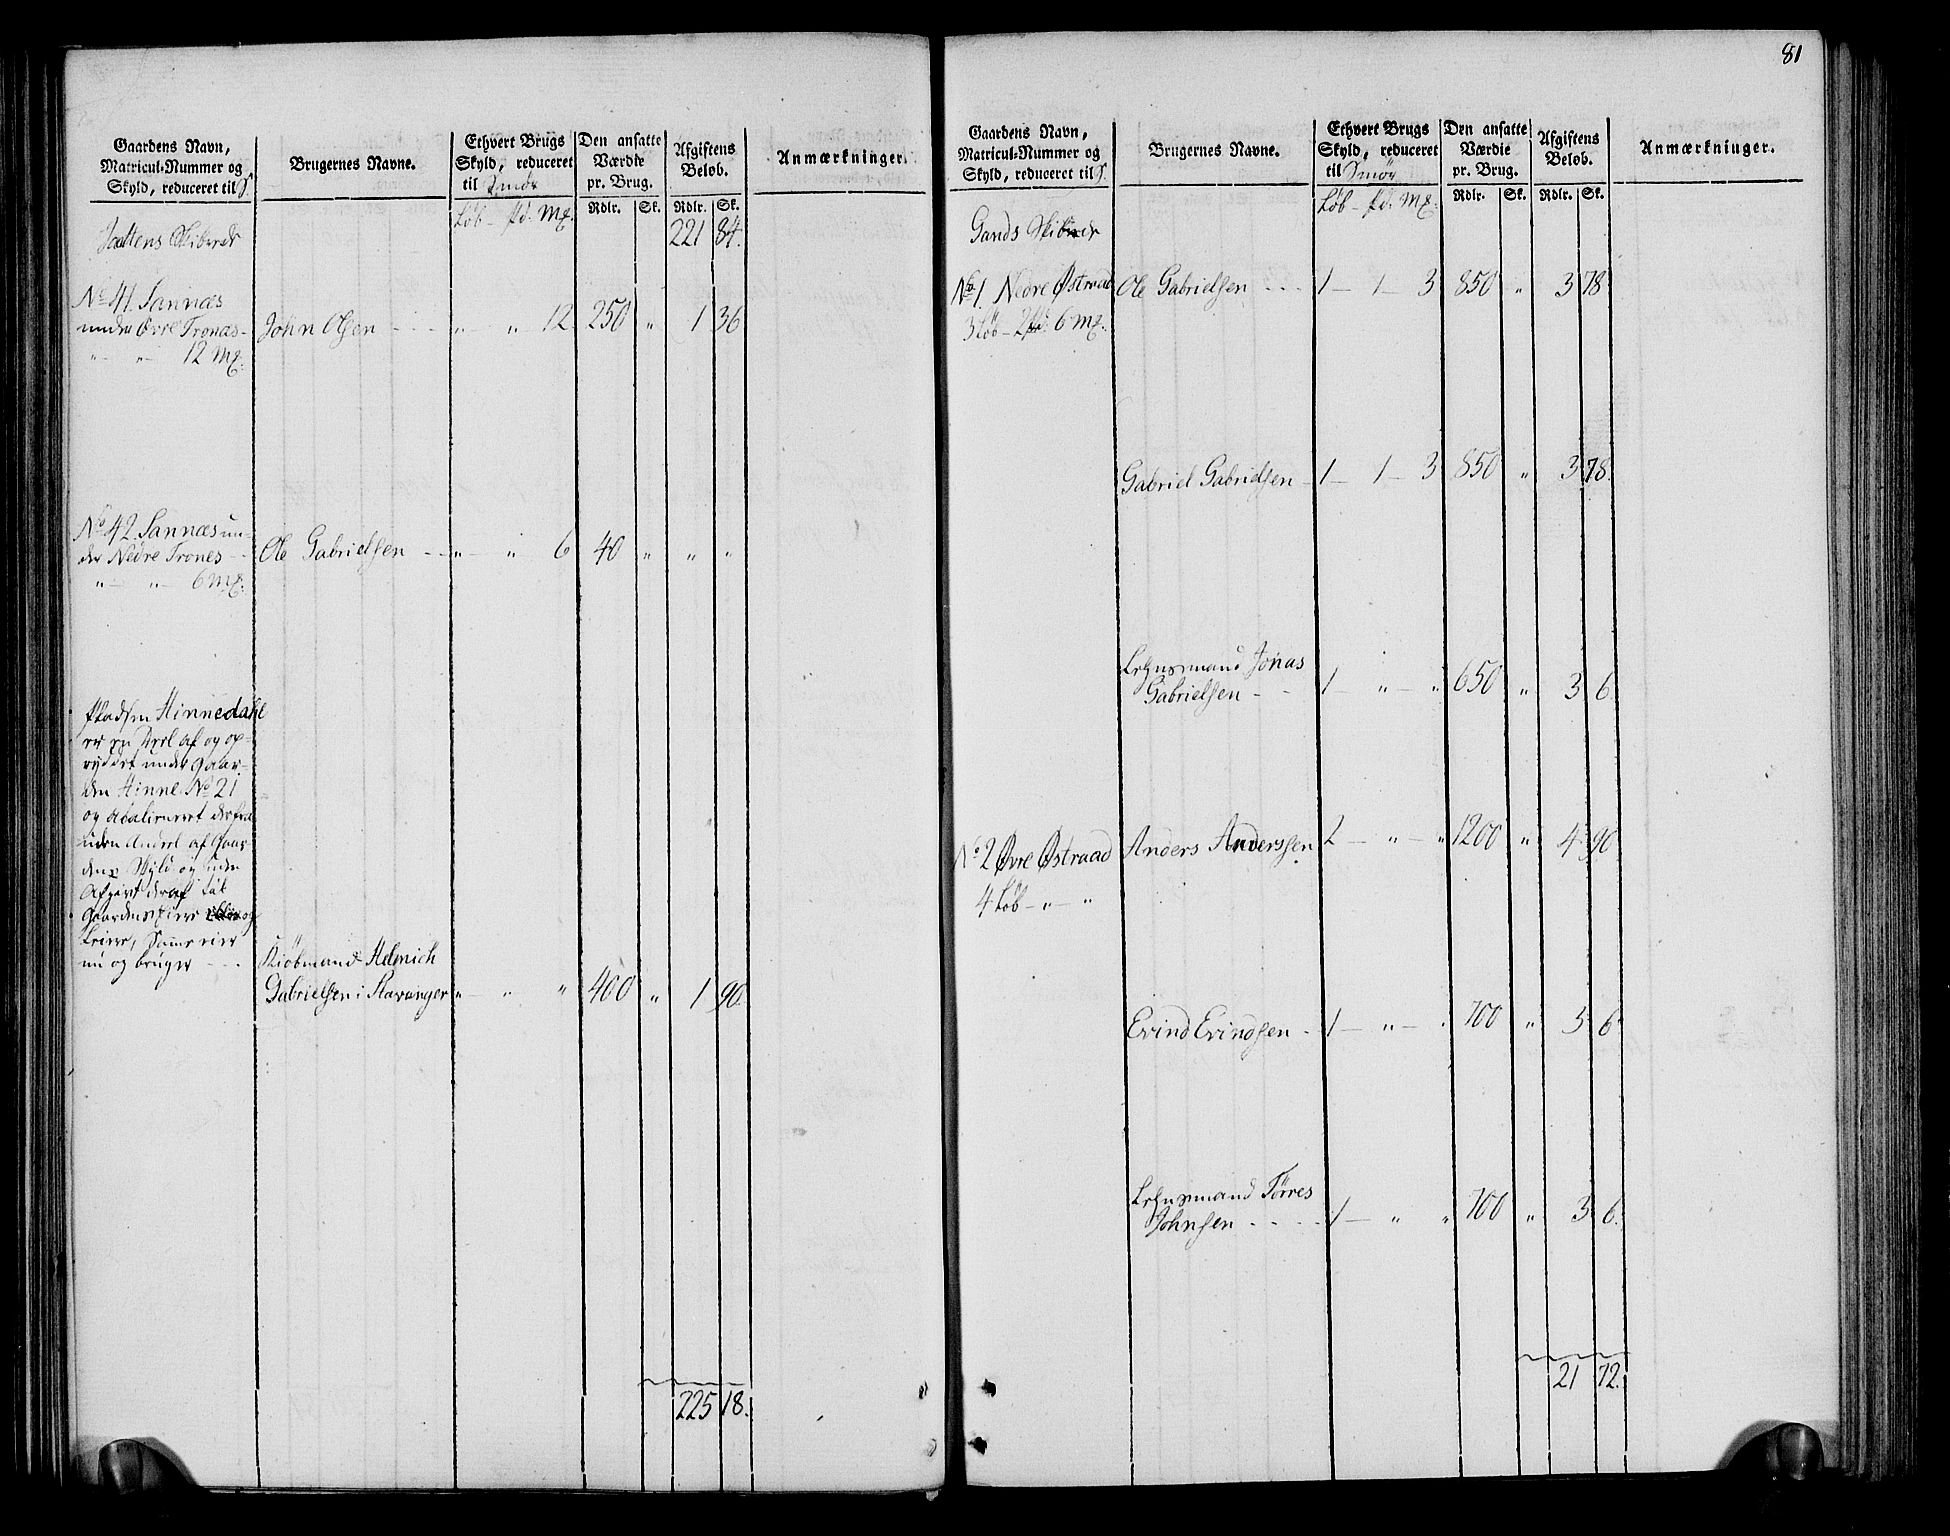 81
Gaardens Navn,
Matricul-Nummer og
Skyld, reduceret til S.
Brugernes Navne.
Ethvert Brugs
Skyld, reduceret
til Smør
Løb - Pd. Mk.
Den ansatte
Værdie
pr. Brug.
Rdlr. Sk.
Afgiftens
Beløb.
Rdlr. Sk.
Anmærkninger.
Jaattens Skibrede
221 84.
No 41. Sannæs
under Øvre Tronas-
" - " - 12 Mk.
John Olsen - - - " - " 12 250 " 1 36
No 42. Sannæs un-
der Nedre Trones - -
" - " - 6 Mk.
Ole Gabrielsen - - " - " 6 40 " " "
Pladsen Hinnedahl
er en Deel af og op-
ryddet under Gaar-
den Hinne No 21
og abalieneret derfra
uden Andeel af Gaar
dens Skyld og uden
Afgivt deraf til
Gaardens Eiere og
Leiere, Samme eier
nu og bruger - - -
Kiøbmand Helmich
Gabrielsen i Stavanger " - " " 400 " 1 90.
225 18.
Gaardens Navn,
Matricul-Nummer og
Skyld, reduceret til S.
Brugernes Navne.
Ethvert Brugs
Skyld, reduceret
til Smør
Løb - Pd. Mk.
Den ansatte
Værdie
pr. Brug.
Rdlr. Sk.
Afgiftens
Beløb.
Rdlr. Sk.
Anmærkninger.
Gands Skibrede
No 1. Nedre Østraad
3 Løb - 2 Pd. 6 Mk.
Ole Gabrielsen - - - 1 - 1 - 3 850 " 3 78
Gabriel Gabrielsen - 1 - 1 - 3 850 " 3 78.
Lehnsmand Jonas
Gabrielsen - - 1 - " - " 650 " 3 6.
No 2 Øvre Østraad
4 Løb - " - "
Anders Anderssen 2 - " - " 1200 " 4 90
Evind Evindsen - 1 - " - " 700 " 3 6
Lehnsmand Tørres
Johnsen - - - - 1 - " " 700 " 3 6.
21 72.